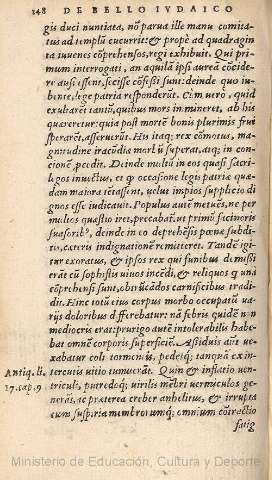 348 DE BELLO IVDAICO
gis duci nuntiata, nō parua ille manu comita
tus ad templū cucurrit: & propè ad quadragin
ta iuuenes cōprehensos, regi exhibuit. Qui pri
mum interrogati, an aquilā ipsi aurea cōcide
re ausi essent, secisse cōfessi sunt: deinde quo iu
bente, lege patria respōderūt. Cùm verò, quid
exultarēt tantū, quibus mors in mineret, ab his
quæreretur: quia post mortē bonis plurimis frui
sperarēt, asseruerūt. His itaq; rex cōmotus, ma
gnitudine iracūdiæ morbū superat, atq; in con
cionē p̄cedit. Deinde multū in eos quasi sacri
legos inuectus, et q̇ occasione legis patriæ quæ
dam maiora tētassent, velut impios supplicio di
gnos esse iudicauit. Populus autē metuēs, ne per
multos quæstio iret, precabat̃ ut primū facinoris
suasorib9, deinde in eo deprehēsis pœnā subdi
tis, cæteris indignationē remitteret. Tandē igi
tur exoratus, & ipsos rex qui funibus demissi
erāt cū sophistis viuos incēdi, & reliquos q̇ unà
cōprehensi sunt, obtrūcādos carnificibus tradi
dit. Hinc totū eius corpus morbo occupatū ua
rijs doloribus differebatur: nā febris quidē non
mediocris erat: prurigo autē intolerabili habe
bat omnē corporis superficiē. Assiduis autē ue
xabatur coli tormentis, pedesq; tanquā ex in-
Antiq. li. tercutis uitio tumuerāt. Quin & inflatio ven
17. cap. 9 triculi, putredoq; virilis mēbri vermiculos gene
rās, ac præterea creber anhelitus, & irrupta
cum suspiria membrorumq; omnium cōtractio
fatig
Ministerio de Educación, Cultura y Deporte